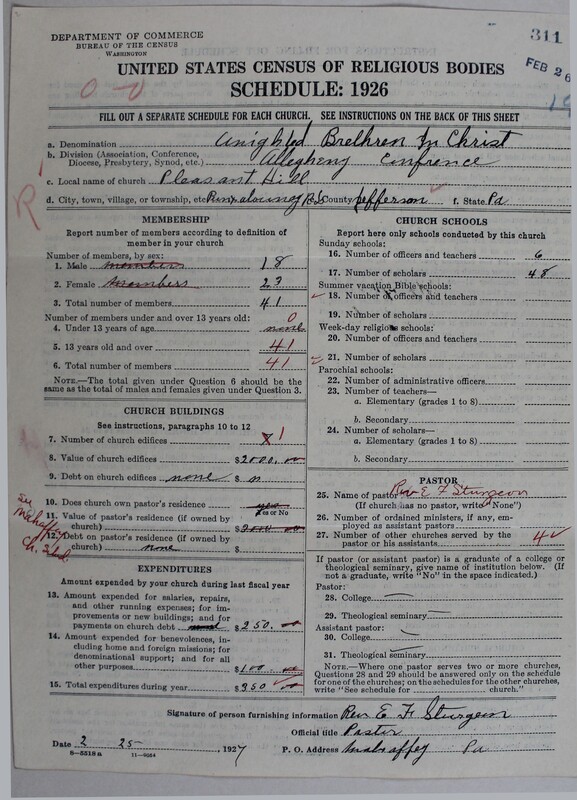 DEPARTMENT OF COMMERCE
BUREAU OF THE CENSUS
WASHINGTON
311
FEB 26
UNITED STATES CENSUS OF RELIGIOUS BODIES
SCHEDULE: 1926
FILL OUT A SEPARATE SCHEDULE FOR EACH CHURCH. SEE INSTRUCTIONS ON THE BACK OF THIS SHEET
a. Denomination Unighted Brethren In Christ
b. Division (Association, Conference, Diocese, Presbytery, Synod, etc.) Allegheny Confrence
c. Local name of church Pleasant Hill
d. City, town, village, or township, etc. County Jefferson f. State Pa
MEMBERSHIP
Report number of members according to definition of
member in your church
Number of members by sex:
1. Male members 18
2. Female members 23
3. Total number of members 41
Number of members under and over 13 years old: 0
4. Under 13 years of age none
5. 13 years old and over 41
6. Total number of members 41
NOTE.—The total given under Question 6 should be
the same as the total of males and females given under Question 3.
CHURCH BUILDINGS
See instructions, paragraphs 10 to 12
7. Number of church edifices 1
8. Value of church edifices $2000.00
9. Debt on church edifices none $ n
10. Does church own pastor's residence yes
Yes or No
11. Value of pastor's residence (if owned by
church) $2000 00
12. Debt on pastor's residence (if owned by
church) none $
See Mahaffey Ch.
EXPENDITURES
Amount expended by your church during last fiscal year
13. Amount expended for salaries, repairs,
and other running expenses; for im-
provements or new buildings; and for
payments on church debt $250.00
14. Amount expended for benevolences, in-
cluding home and foreign missions; for
denominational support; and for all
other purposes $100 00
15. Total expenditures during year $350 00
CHURCH SCHOOLS
Report here only schools conducted by this church
Sunday schools:
16. Number of officers and teachers 6
17. Number of scholars 48
Summer vacation Bible schools:
18. Number of officers and teachers
19. Number of scholars
Week-day religious schools:
20. Number of officers and teachers
21. Number of scholars
Parochial schools:
22. Number of administrative officers
23. Number of teachers—
a. Elementary (grades 1 to 8)
b. Secondary
24. Number of scholars—
a. Elementary (grades 1 to 8)
b. Secondary
PASTOR
25. Name of pastor Rev E F Sturgeon
(If church has no pastor, write "None")
26. Number of ordained ministers, if any, em-
ployed as assistant pastors
27. Number of other churches served by the
pastor or his assistants 4
If pastor (or assistant pastor) is a graduate of a college or
theological seminary, give name of institution below. (If
not a graduate, write "No" in the space indicated.)
Pastor:
28. College
29. Theological seminary
Assistant pastor:
30. College
31. Theological seminary
NOTE.—Where one pastor serves two or more churches,
Questions 28 and 29 should be answered only on the schedule
for one of the churches; on the schedules for the other churches,
write "See schedule for church."
Signature of person furnishing information Rev E F Sturgeon
Official title Pastor
Date 2 25, 1927 P. O. Address Mahaffey Pa
8—5518a 11—9264